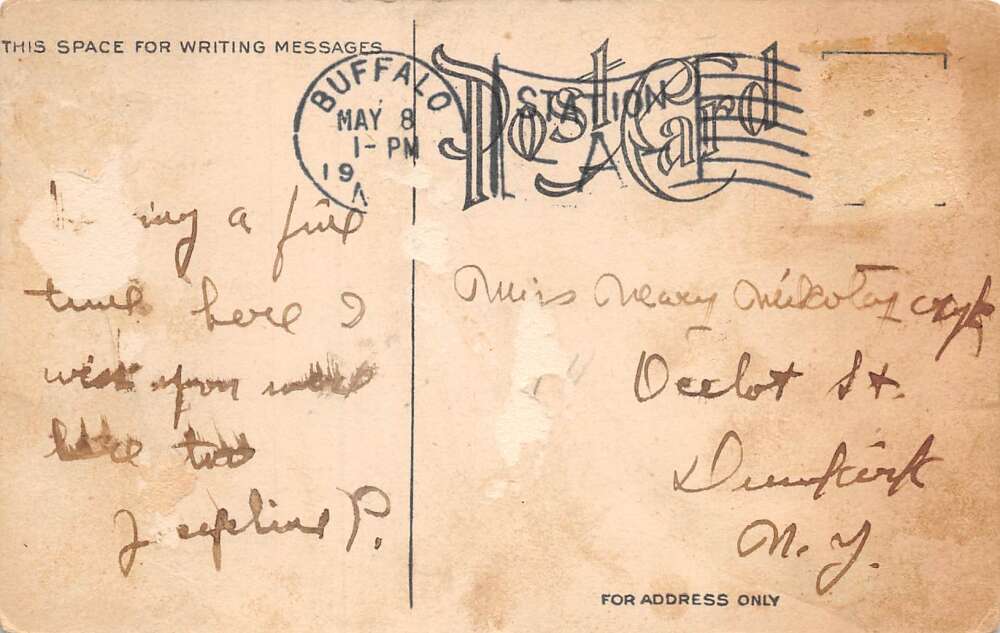 THIS SPACE FOR WRITING MESSAGES
Post Card
BUFFALO
MAY 8
1-PM
19
STATION
A
a fine
time here I
wish you were
here too
Josephine P.
Miss Mary
Ocelot St.
Dunkirk
N. Y.
FOR ADDRESS ONLY